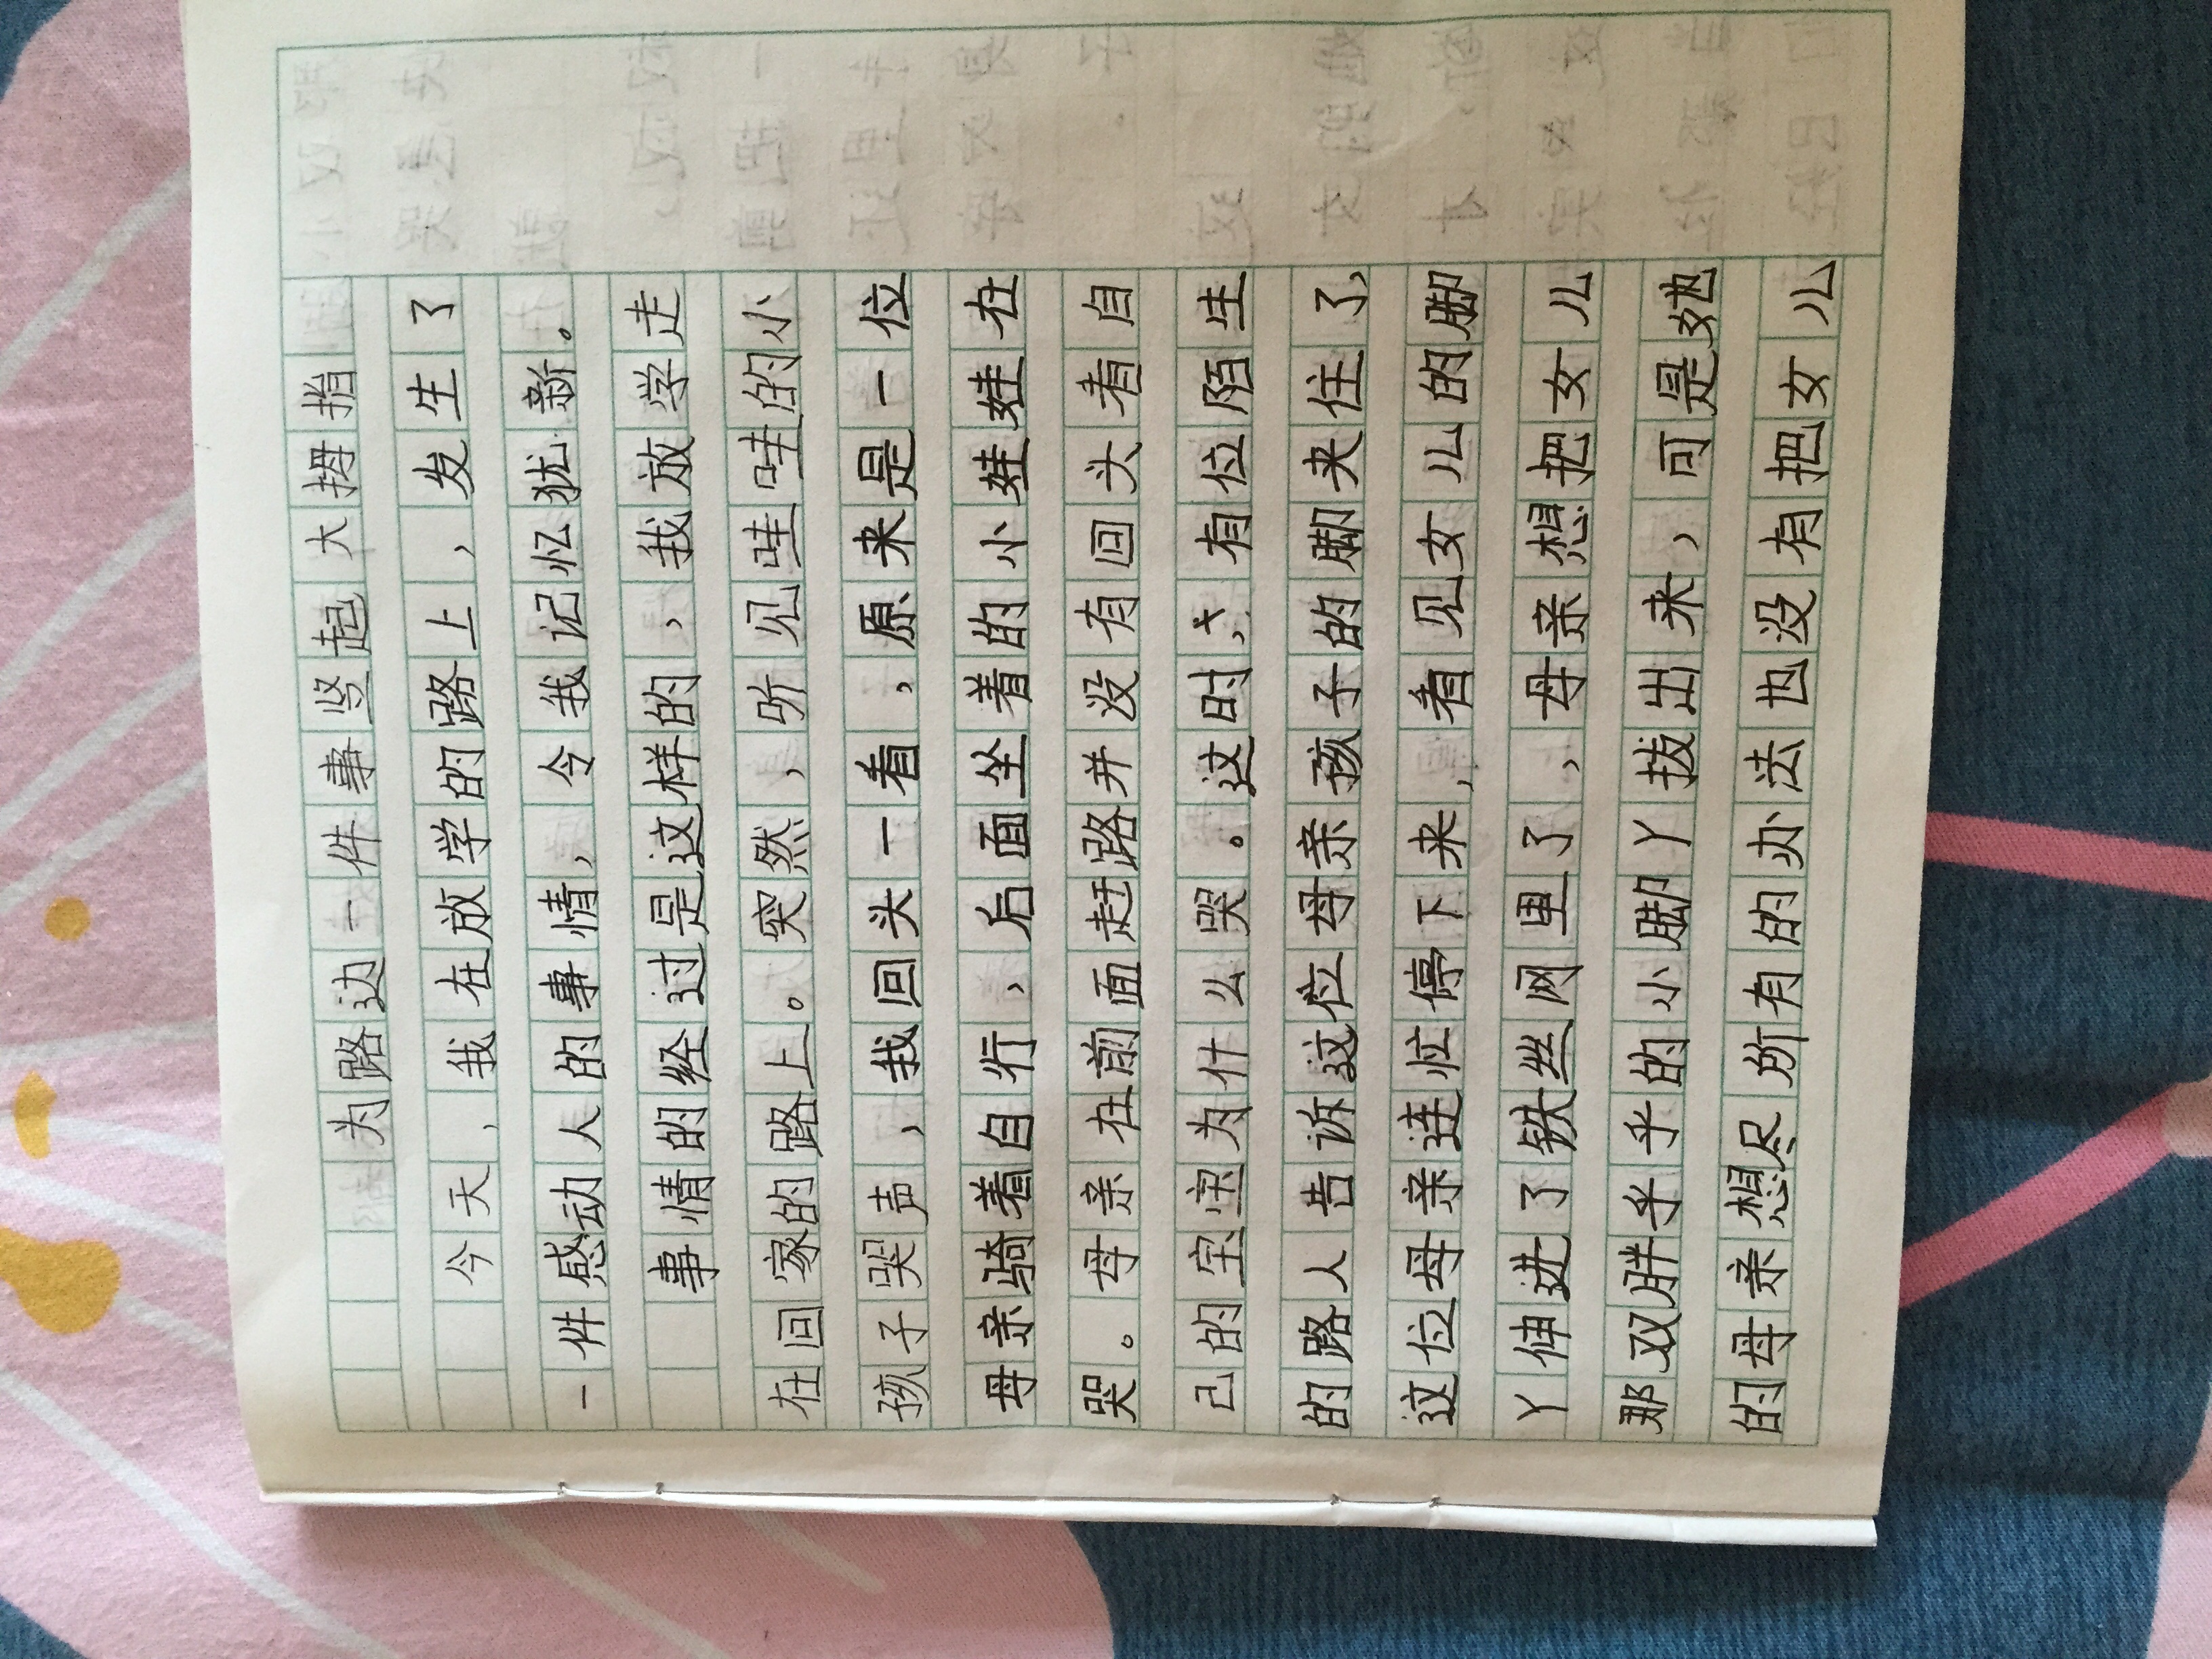 为路边一件事竖起大拇指
今天,我在放学的路上,发生了
一件感动人的事情,令我记忆犹新。
事情的经过是这样的,我放学走
在回家的路上。突然,听见哇哇的小
孩子哭声,我回头一看,原来是一位
母亲骑着自行,后面坐着的小娃娃在
哭。母亲在前面赶路并没有回头看自
己的宝宝为什么哭。这时,有位陌生
的路人告诉这位母亲孩子的脚夹住了,
这位母亲连忙停下来,看见女儿的脚
丫伸进了铁丝网里了,母亲想把女儿
那双胖乎乎的小脚丫拔出来,可是她
的母亲想尽所有的办法也没有把女儿